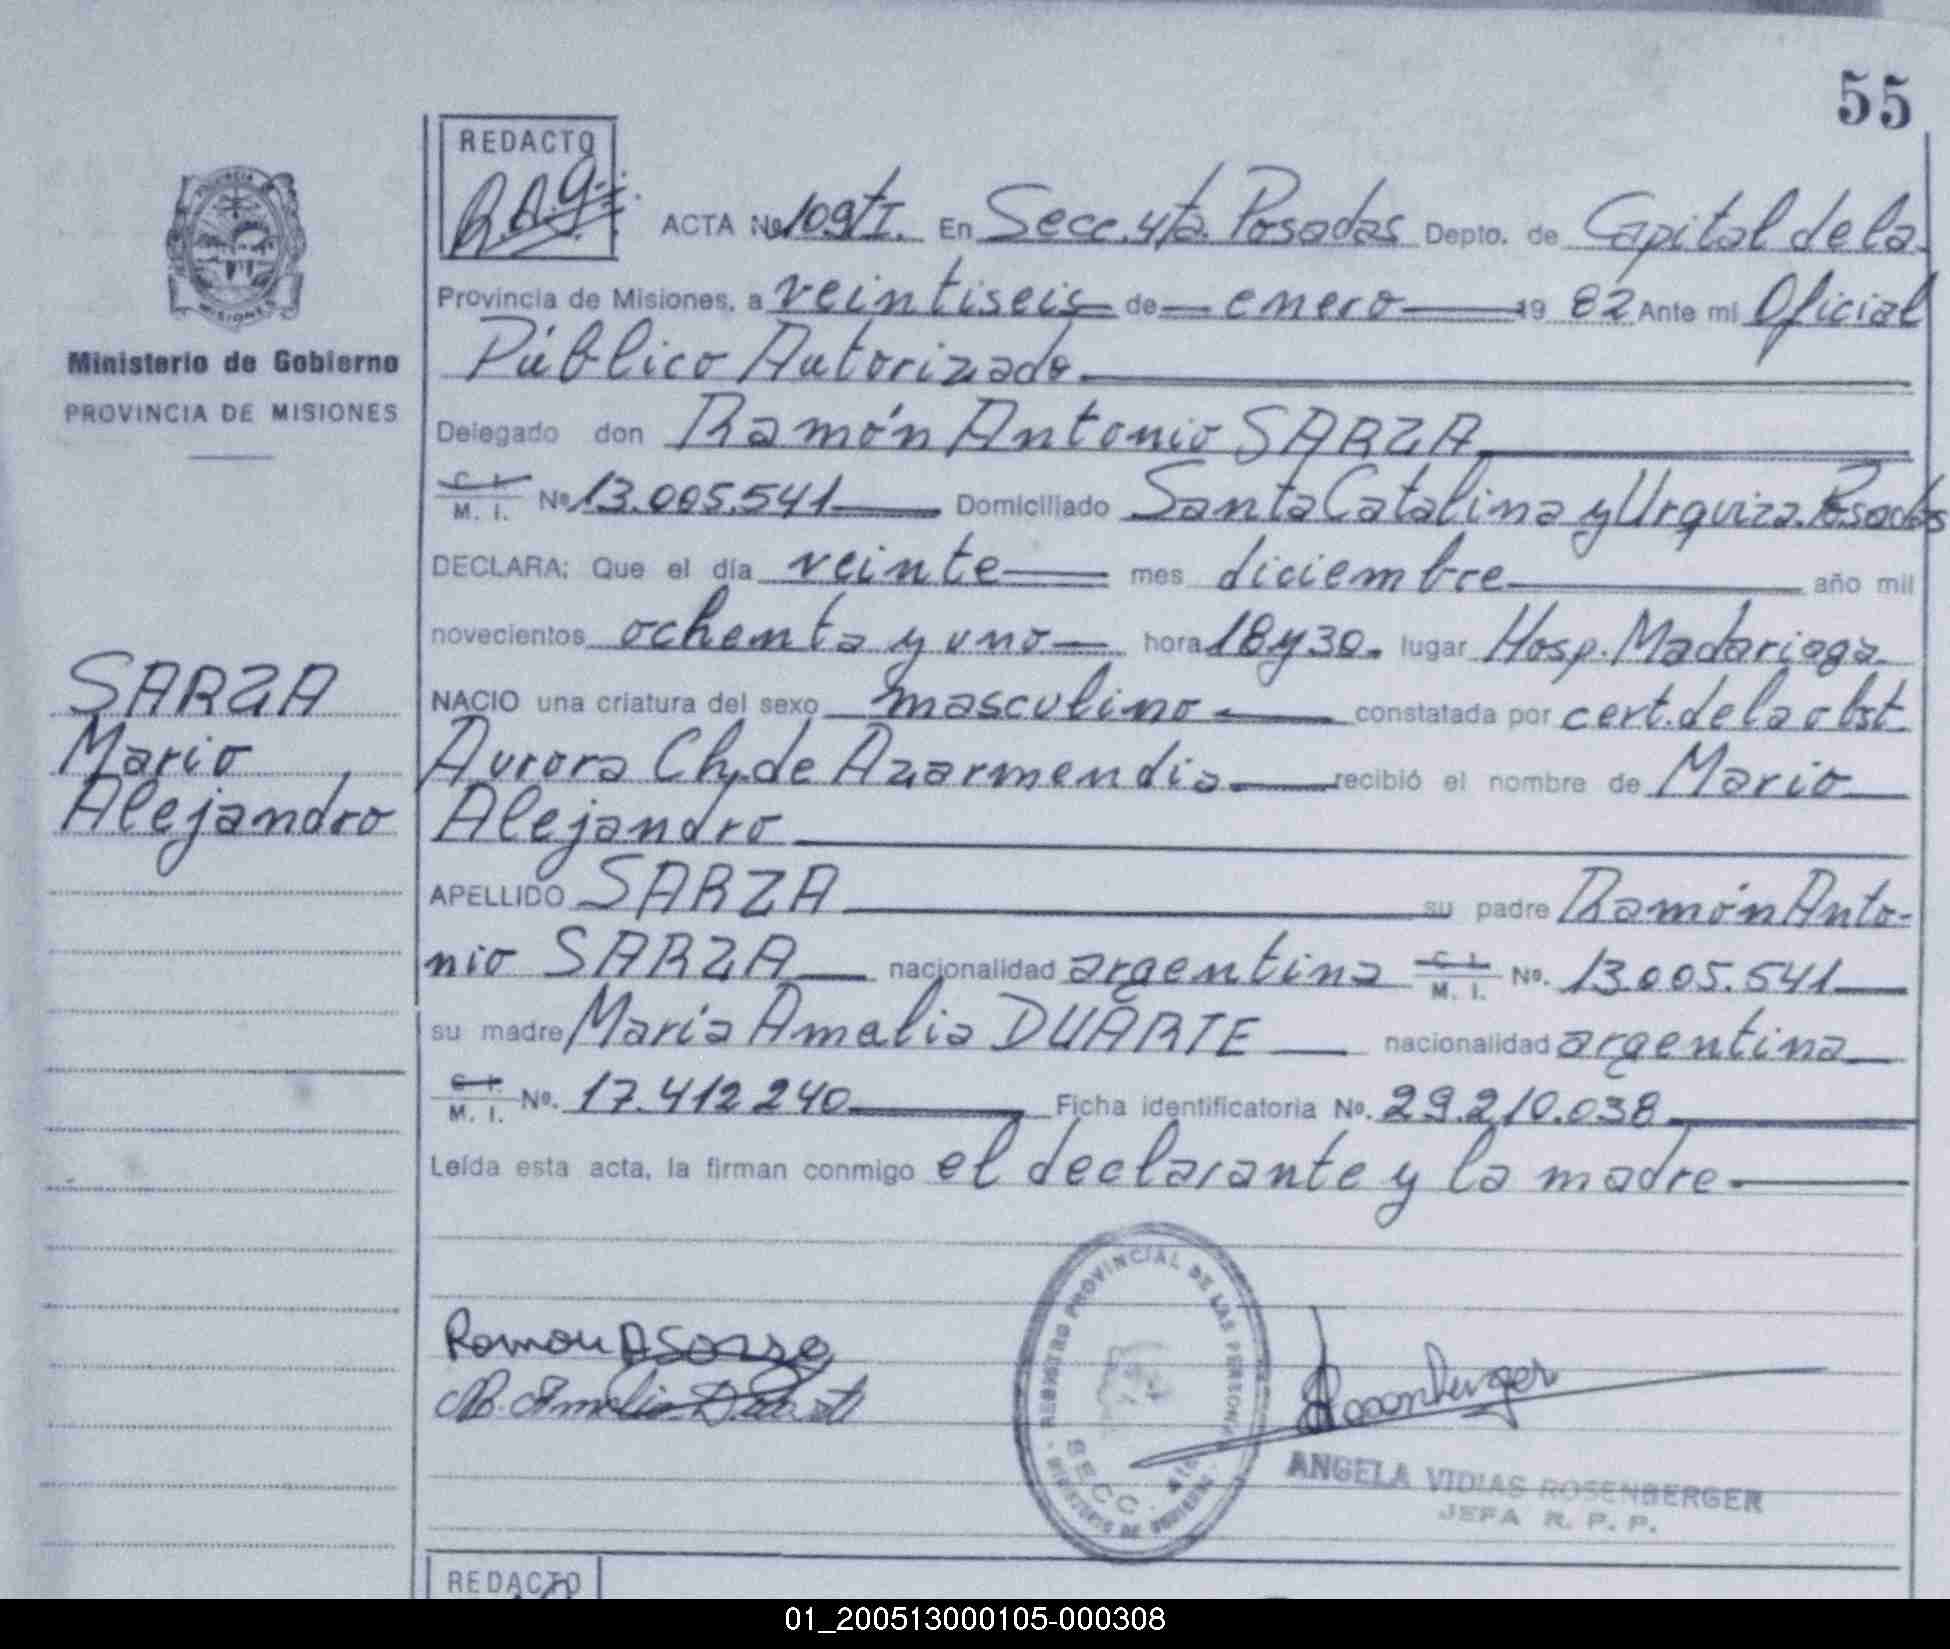 55
REDACTO
ACTA Nº 109 TI. En Secc. 4ta. Posadas Depto. de Capital de la
Provincia de Misiones, a veintiseis de enero 19 82 Ante mi Oficial
Ministerio de Gobierno
Público Autorizado
PROVINCIA DE MISIONES
Delegado don Ramón Antonio SARZA
C. I.
M. I. Nº 13.005.541 Domiciliado Santa Catalina y Urquiza. Posadas
DECLARA: Que el día veinte mes diciembre año mil
novecientos ochenta y uno hora 18 y 30. lugar Hosp. Madariaga
SARZA
Mario
Alejandro
NACIO una criatura del sexo masculino constatada por cert. de la obst.
Aurora Ch. de Azarmendia recibió el nombre de Mario
Alejandro
APELLIDO SARZA su padre Ramón Anto-
nio SARZA nacionalidad argentina C. I. M. I. No. 13.005.541
su madre María Amalia DUARTE nacionalidad argentina
C. I.
M. I. No. 17.412.240 Ficha identificatoria No. 29.210.038
Leída esta acta, la firman conmigo el declarante y la madre
REGISTRO PROVINCIAL DE LAS PERSONAS
SECC. 4ta
MINISTERIO DE GOBIERNO
Ramon A Sarza
M. Amalia Duarte
Rosenberger
ANGELA VIDIAS ROSENBERGER
JEFA R. P. P.
REDACTO
01_200513000105-000308